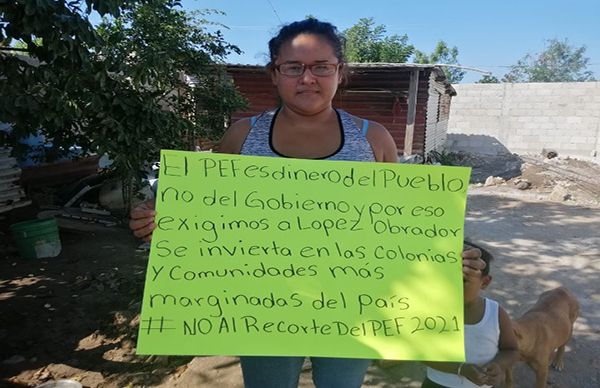 El PEF es dinero del Pueblo
no del Gobierno y por eso
exigimos a Lopez Obrador
Se invierta en las Colonias
y Comunidades más
marginadas del país
# NO Al Recorte Del PEF 2021